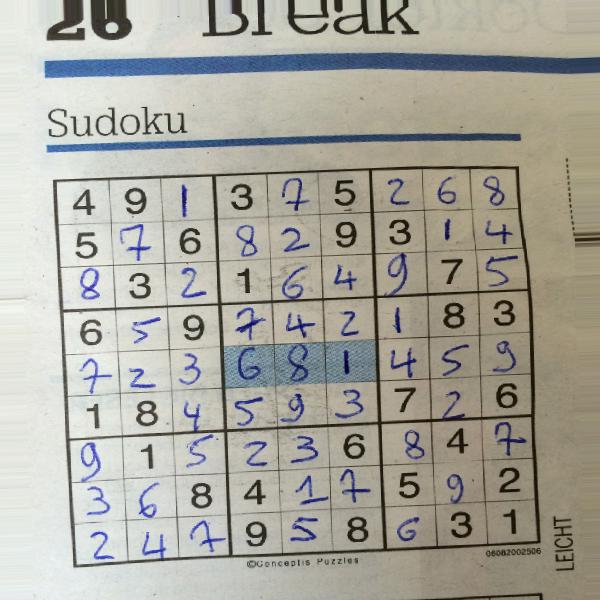 28 Break
Sudoku
4 9 1 3 7 5 2 6 8
5 7 6 8 2 9 3 1 4
8 3 2 1 6 4 9 7 5
6 5 9 7 4 2 1 8 3
7 2 3 6 8 1 4 5 9
1 8 4 5 9 3 7 2 6
9 1 5 2 3 6 8 4 7
3 6 8 4 1 7 5 9 2
2 4 7 9 5 8 6 3 1
©Conceptis Puzzles 06082002506
LEICHT